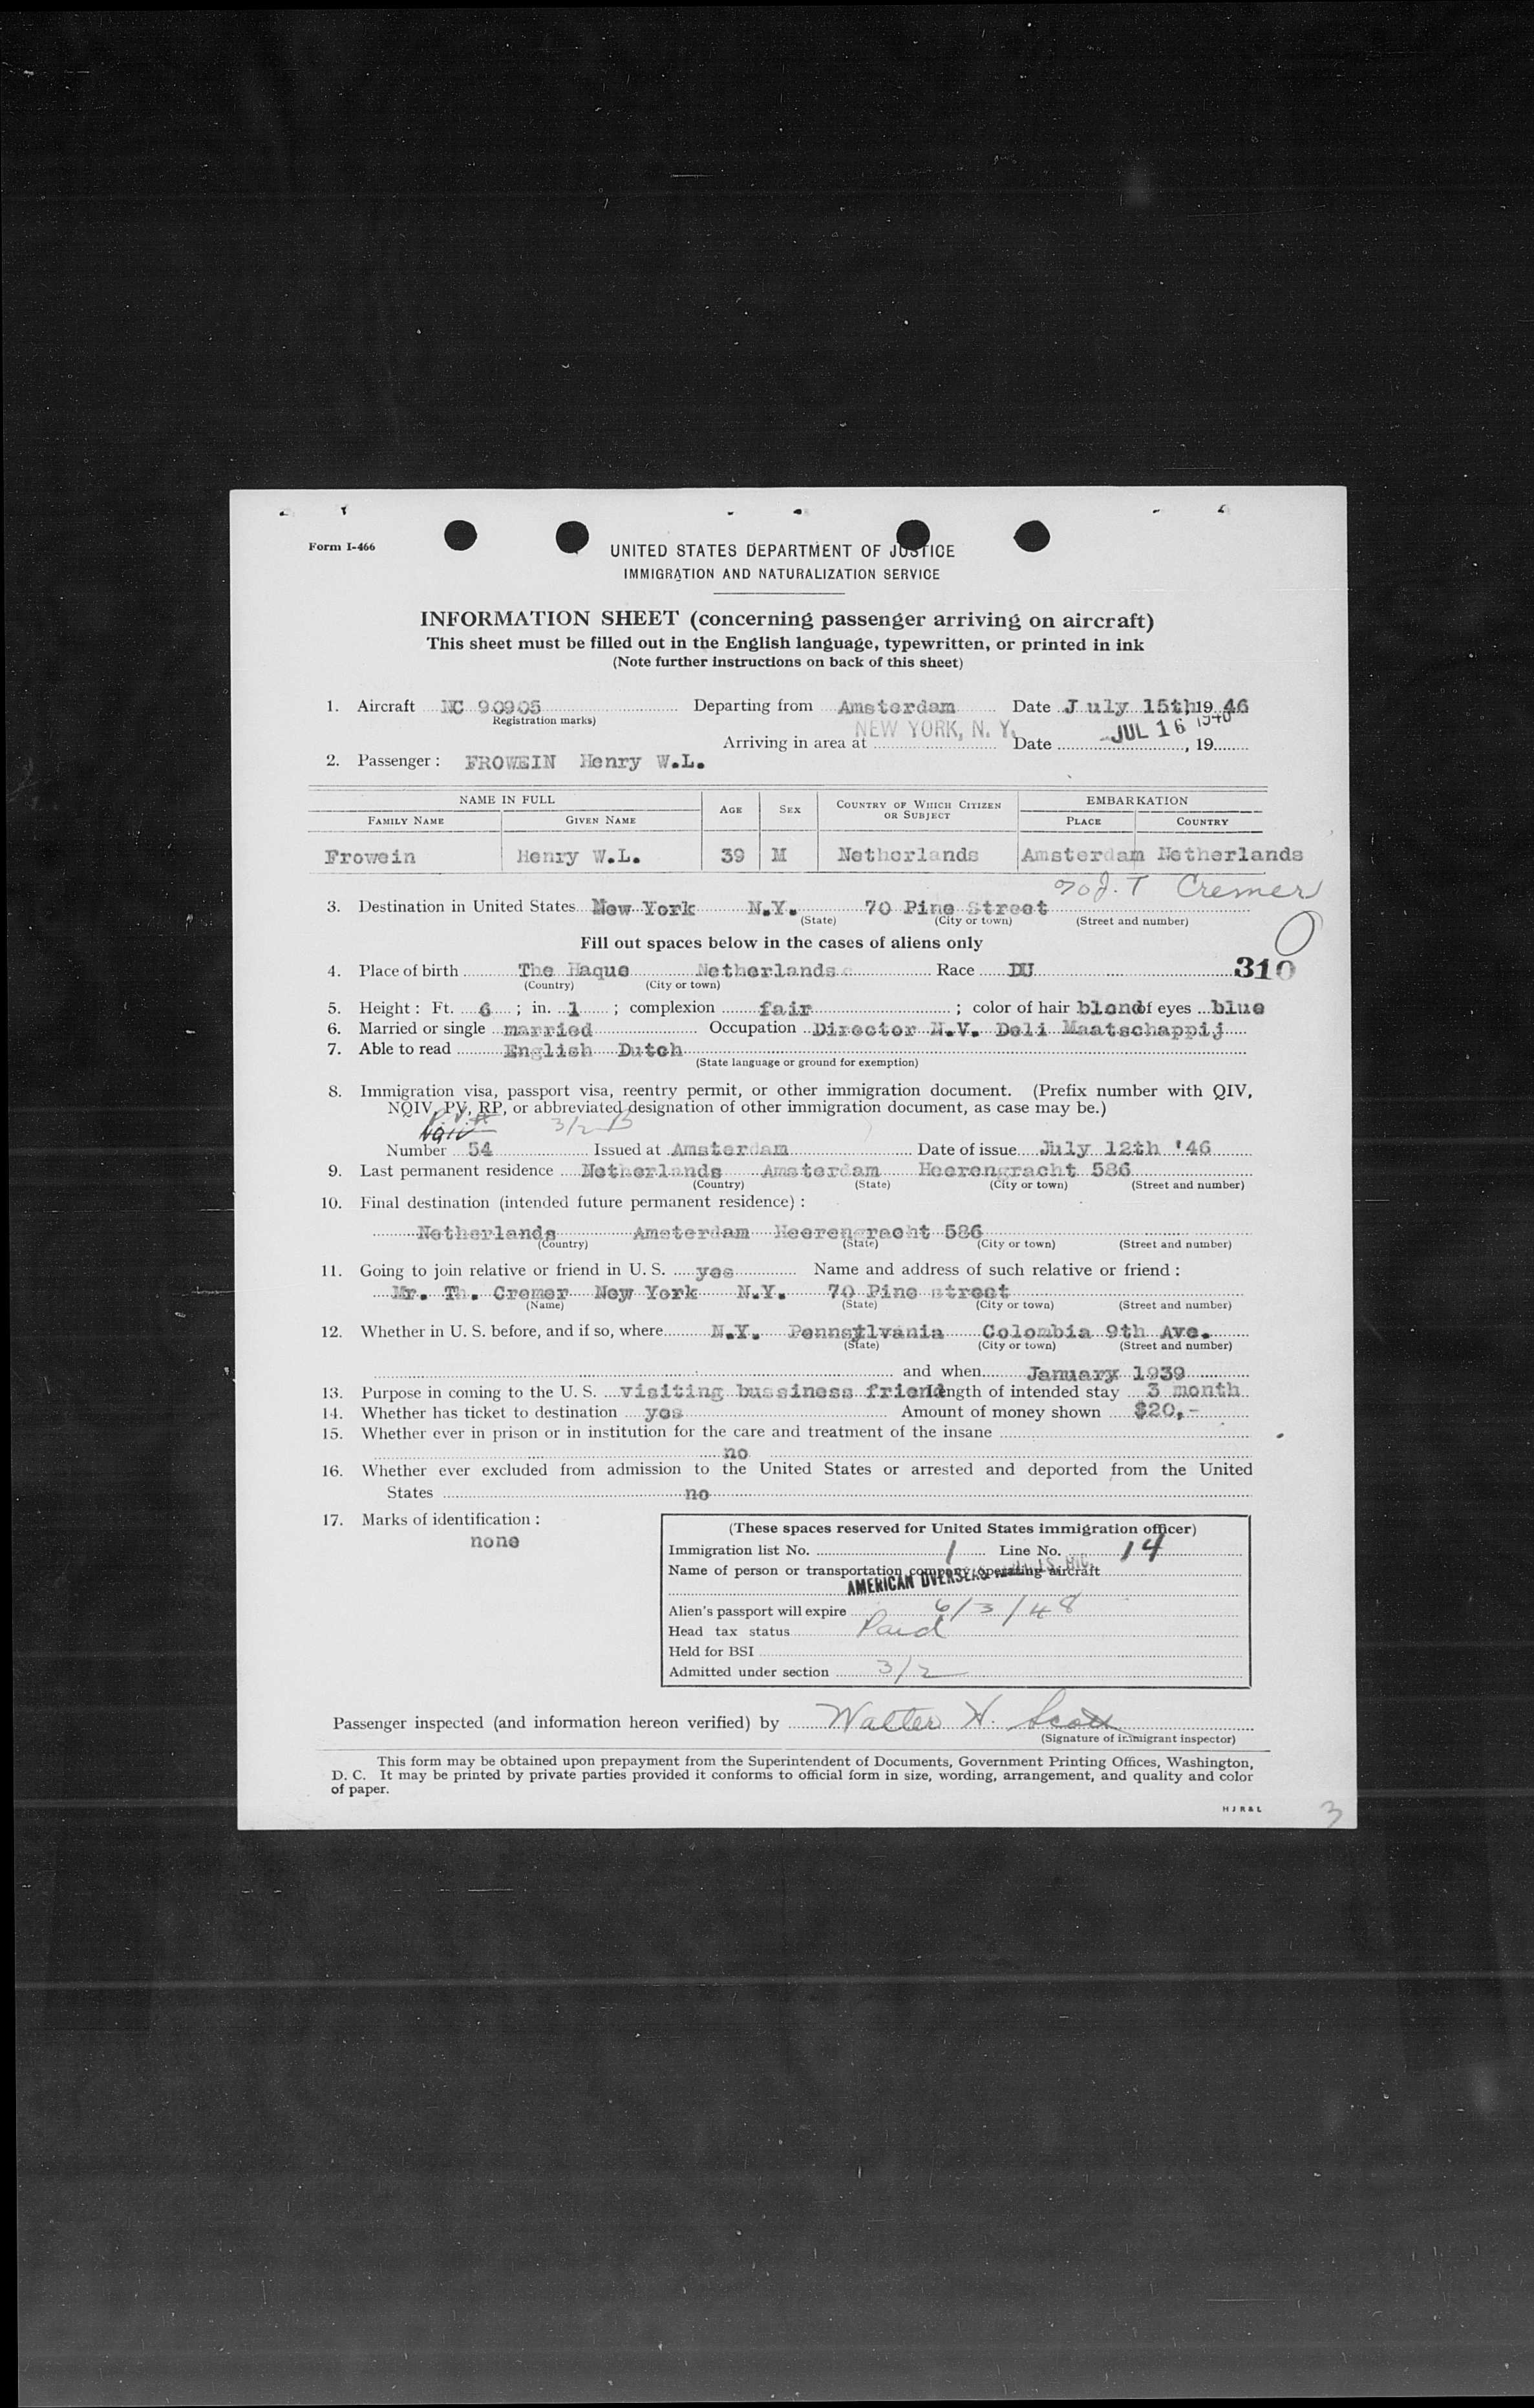 Form I-466
UNITED STATES DEPARTMENT OF JUSTICE
IMMIGRATION AND NATURALIZATION SERVICE
INFORMATION SHEET (concerning passenger arriving on aircraft)
This sheet must be filled out in the English language, typewritten, or printed in ink
(Note further instructions on back of this sheet)
1. Aircraft NC 90905 Departing from Amsterdam Date July 15th, 19 46
(Registration marks)
Arriving in area at NEW YORK, N. Y. Date JUL 16 1946, 19
2. Passenger : FROWEIN Henry W.L.
NAME IN FULL AGE SEX COUNTRY OF WHICH CITIZEN OR SUBJECT EMBARKATION
FAMILY NAME GIVEN NAME PLACE COUNTRY
Frowein Henry W.L. 39 M Netherlands Amsterdam Netherlands
% J. T Cremer
3. Destination in United States New York N.Y. 70 Pine Street
(State) (City or town) (Street and number)
Fill out spaces below in the cases of aliens only
4. Place of birth The Haque Netherlands Race DU 310
(Country) (City or town)
5. Height : Ft. 6 ; in. 1 ; complexion fair ; color of hair blond of eyes blue
6. Married or single married Occupation Director N.V. Deli Maatschappij
7. Able to read English Dutch
(State language or ground for exemption)
8. Immigration visa, passport visa, reentry permit, or other immigration document. (Prefix number with QIV,
NQIV, PV, RP, or abbreviated designation of other immigration document, as case may be.)
P.V. # 3/2 B
NQIV
Number 54 Issued at Amsterdam Date of issue July 12th '46
9. Last permanent residence Netherlands Amsterdam Heerengracht 586
(Country) (State) (City or town) (Street and number)
10. Final destination (intended future permanent residence) :
Netherlands Amsterdam Heerengracht 586
(Country) (State) (City or town) (Street and number)
11. Going to join relative or friend in U. S. yes Name and address of such relative or friend :
Mr. Th. Cremer New York N.Y. 70 Pine street
(Name) (State) (City or town) (Street and number)
12. Whether in U. S. before, and if so, where N.Y. Pennsylvania Colombia 9th Ave.
(State) (City or town) (Street and number)
and when January 1939
13. Purpose in coming to the U. S. visiting bussiness friend Length of intended stay 3 month
14. Whether has ticket to destination yes Amount of money shown $20,-
15. Whether ever in prison or in institution for the care and treatment of the insane
no
16. Whether ever excluded from admission to the United States or arrested and deported from the United
States no
17. Marks of identification :
none
(These spaces reserved for United States immigration officer)
Immigration list No. 1 Line No. 14
Name of person or transportation company operating aircraft
AMERICAN OVERSEAS AIRLINES, INC.
Alien's passport will expire 6/3/48
Head tax status Paid
Held for BSI
Admitted under section 3/2
Passenger inspected (and information hereon verified) by Walter H. Scott
(Signature of immigrant inspector)
This form may be obtained upon prepayment from the Superintendent of Documents, Government Printing Offices, Washington,
D. C. It may be printed by private parties provided it conforms to official form in size, wording, arrangement, and quality and color
of paper.
H J R & L
3